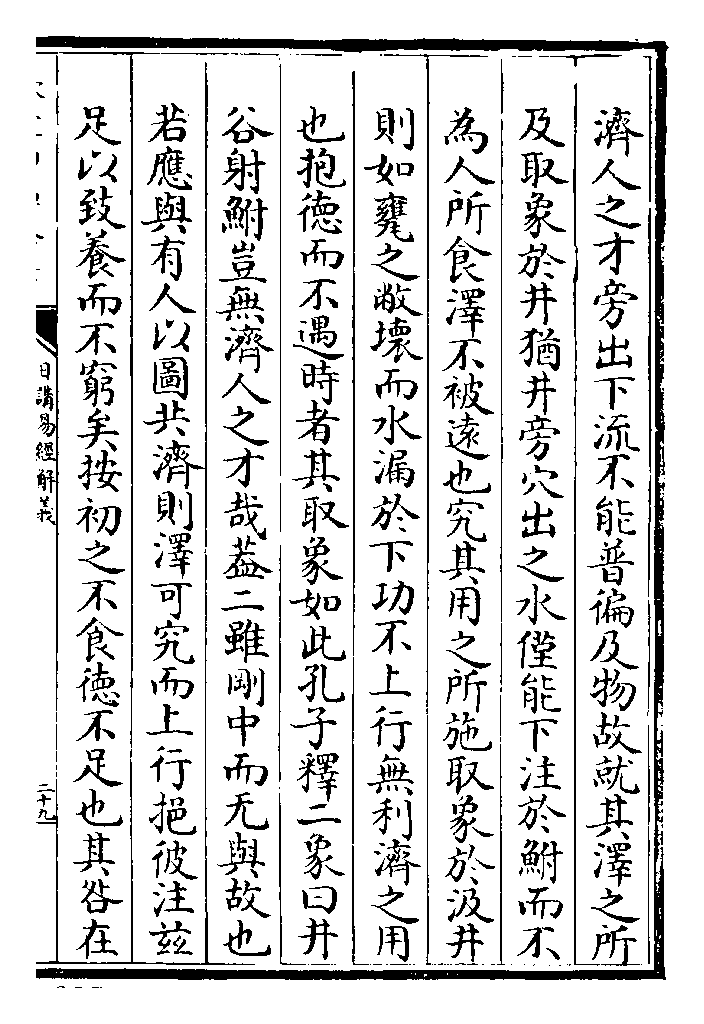 濟人之才旁出下流不能普徧及物故就其澤之所
及取象於井猶井旁穴出之水僅能下注於鮒而不
為人所食澤不被遠也究其用之所施取象於汲井
則如甕之敝壞而水漏於下功不上行無利濟之用
也抱德而不遇時者其取象如此孔子釋二象曰井
谷射鮒豈無濟人之才哉葢二雖剛中而无與故也
若應與有人以圖共濟則澤可究而上行挹彼注兹
足以致養而不窮矣按初之不食德不足也其咎在
日講易經解義
二十九